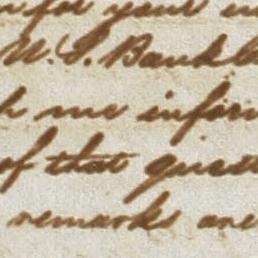 for your
U.S. Bank
me inform
of that quest
remarks are